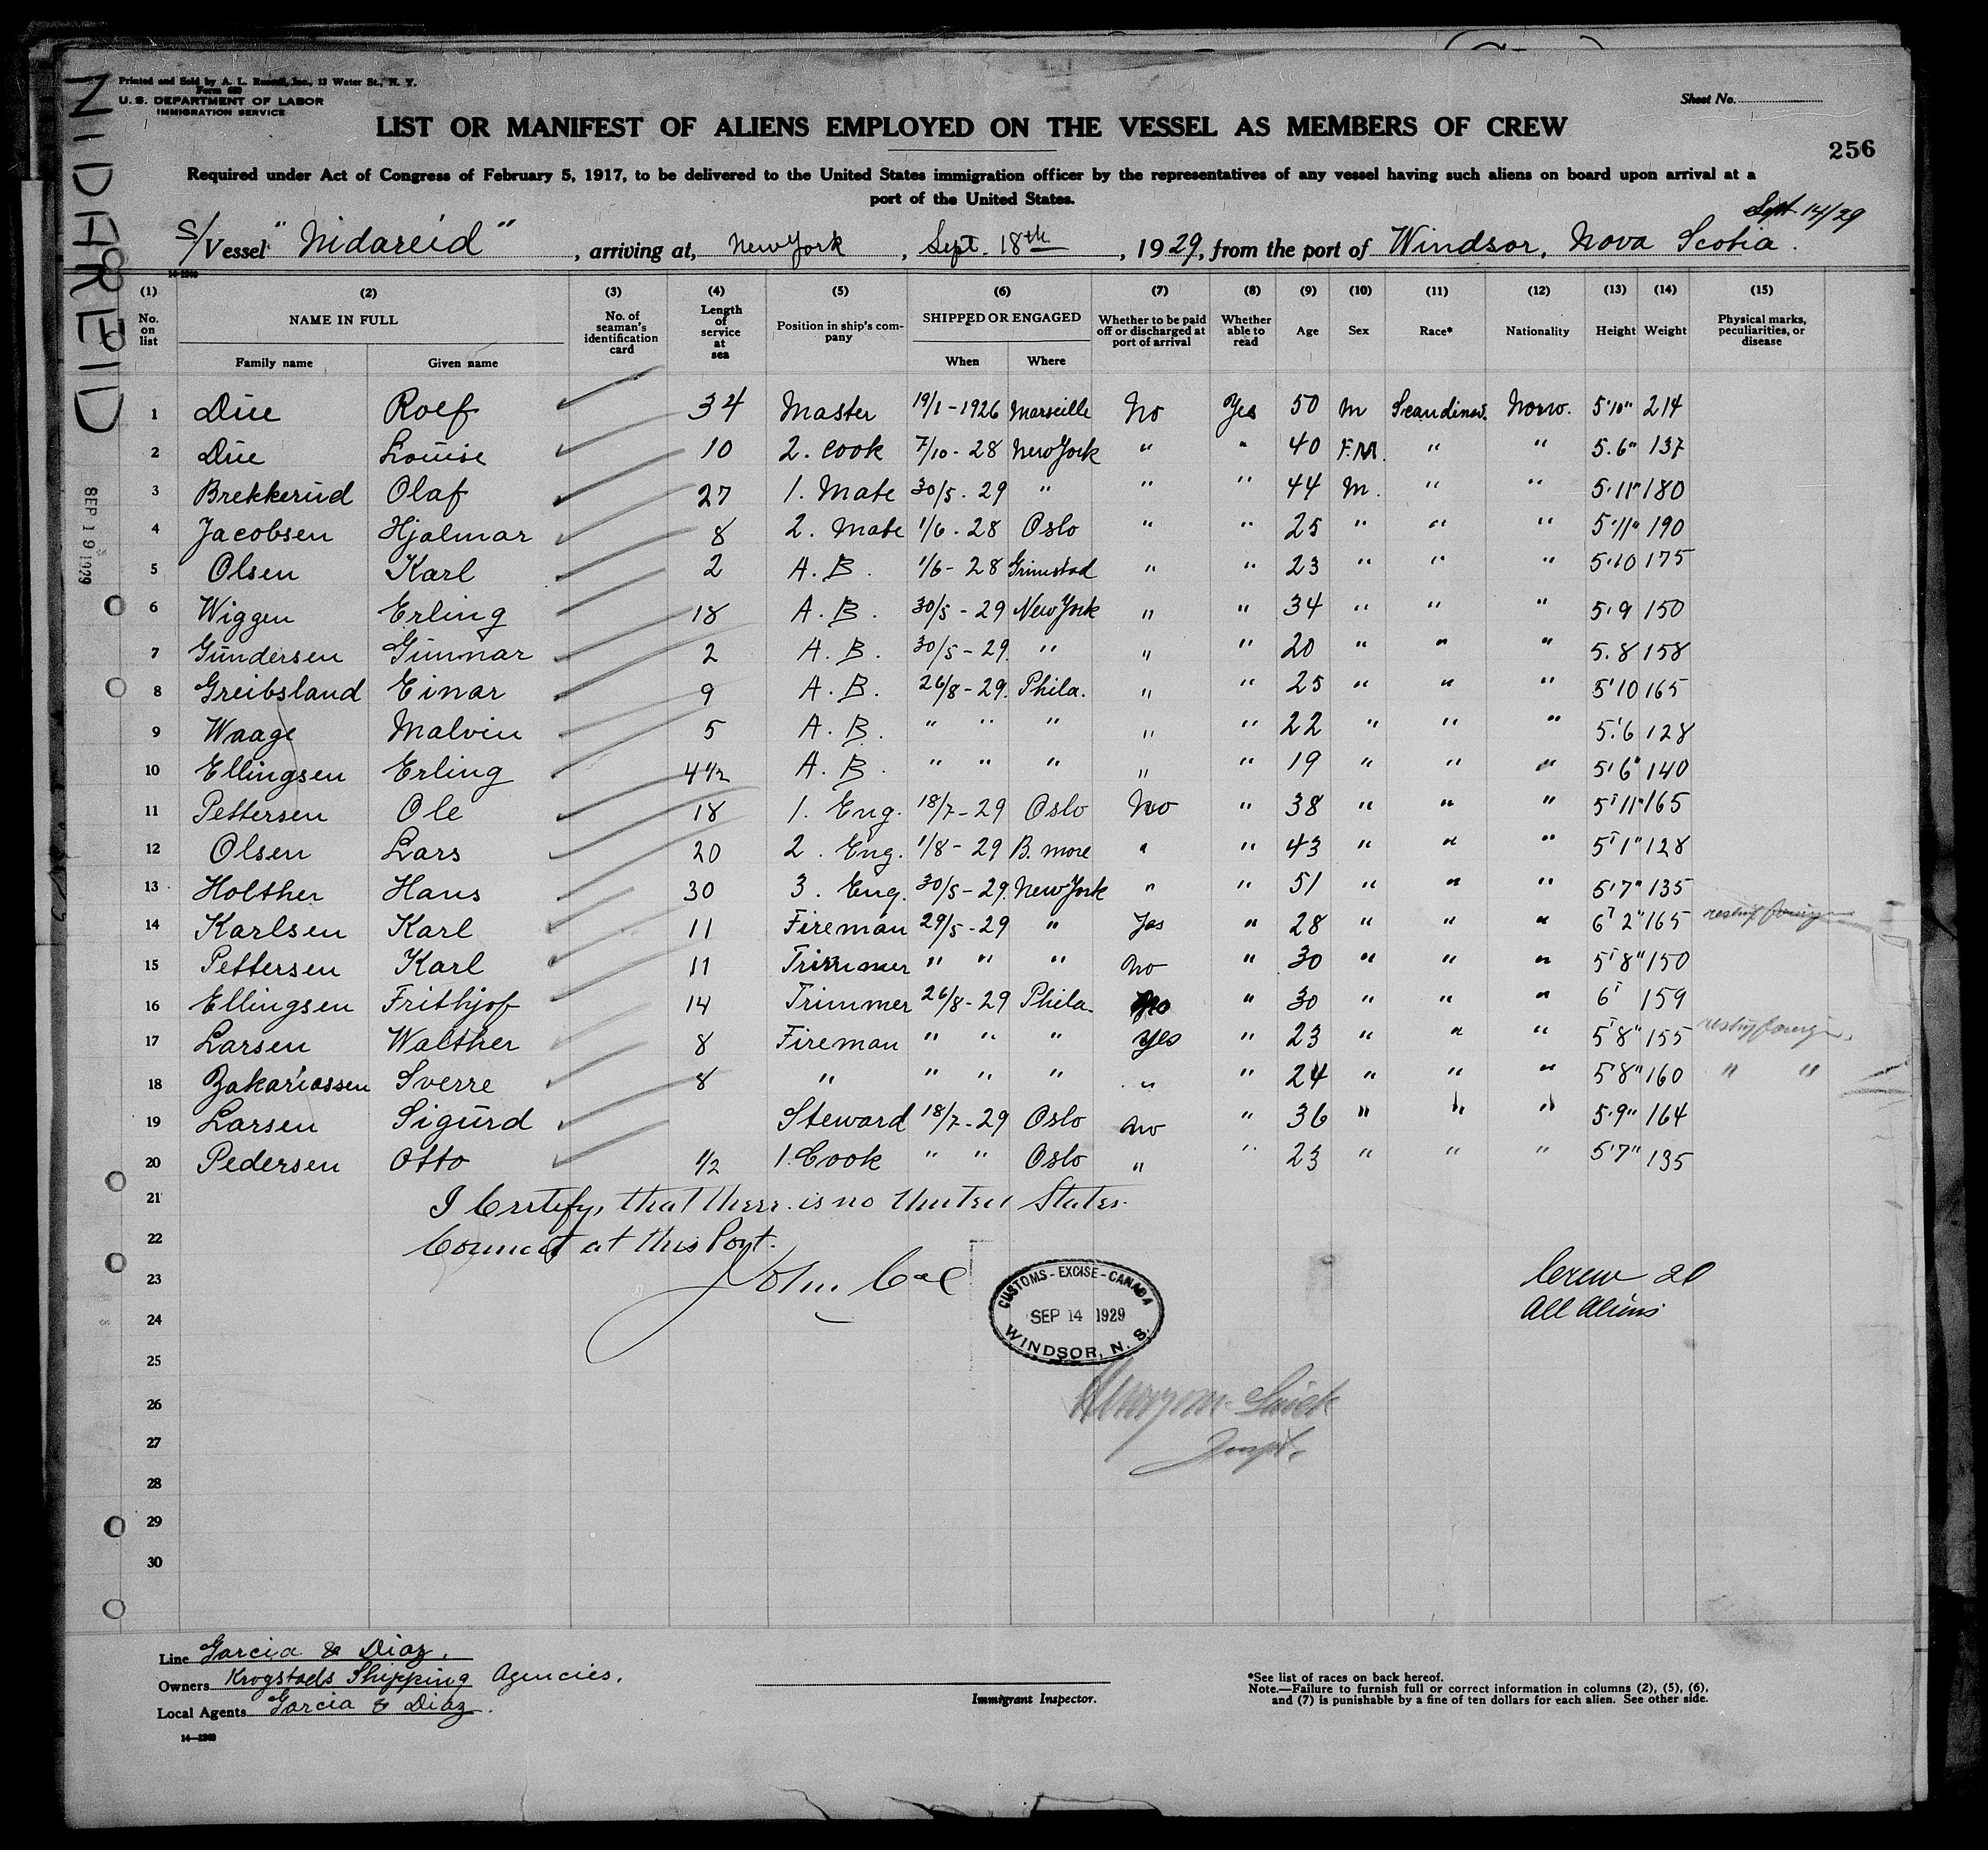 Printed and Sold by A. L. Russell, Inc., 12 Water St., N. Y.
Form 689
U. S. DEPARTMENT OF LABOR
IMMIGRATION SERVICE
Sheet No.
LIST OR MANIFEST OF ALIENS EMPLOYED ON THE VESSEL AS MEMBERS OF CREW
256
Required under Act of Congress of February 5, 1917, to be delivered to the United States immigration officer by the representatives of any vessel having such aliens on board upon arrival at a
port of the United States.
Sept 14/29
S/Vessel "Nidareid", arriving at, New York, Sept. 18th, 1929, from the port of Windsor, Nova Scotia.
NIDAREID
SEP 19 1929
(1) (2) (3) (4) (5) (6) (7) (8) (9) (10) (11) (12) (13) (14) (15)
No. on list NAME IN FULL Family name Given name No. of seaman's identification card Length of service at sea Position in ship's company SHIPPED OR ENGAGED When Where Whether to be paid off or discharged at port of arrival Whether able to read Age Sex Race* Nationality Height Weight Physical marks, peculiarities, or disease
1 Due Rolf 34 Master 19/1-1926 Marseille No Yes 50 M Scandinav. Norw. 5'10" 214
2 Due Louise 10 2. Cook 7/10-28 New York " " 40 F.M. " " 5.6" 137
3 Brekkerud Olaf 27 1. Mate 30/5.29 " " " 44 M. " " 5'11" 180
4 Jacobsen Hjalmar 8 2. Mate 1/6-28 Oslo " " 25 " " " 5'11" 190
5 Olsen Karl 2 A.B. 1/6-28 Grimstad " " 23 " " " 5'10 175
6 Wiggen Erling 18 A.B. 30/5-29 New York " " 34 " " " 5'9 150
7 Gundersen Gunnar 2 A.B. 30/5-29. " " " 20 " " " 5.8 158
8 Greibsland Einar 9 A.B. 26/8-29. Phila. " " 25 " " " 5'10 165
9 Waage Malvin 5 A.B. " " " " " 22 " " " 5'.6 128
10 Ellingsen Erling 4½ A.B. " " " " " 19 " " " 5'6" 140
11 Pettersen Ole 18 1. Eng. 18/7-29 Oslo No " 38 " " " 5'11" 165
12 Olsen Lars 20 2. Eng. 1/8-29 B. more " " 43 " " " 5'1" 128
13 Holther Hans 30 3. Eng. 30/5-29. New York " " 51 " " " 5'7" 135
14 Karlsen Karl 11 Fireman 29/5-29 " Yes " 28 " " " 6'2" 165
15 Pettersen Karl 11 Trimmer " " " No " 30 " " " 5'8" 150
16 Ellingsen Frithjof 14 Trimmer 26/8-29 Phila. No " 30 " " " 6' 159
17 Larsen Walther 8 Fireman " " " Yes " 23 " " " 5'8" 155
18 Zakariassen Sverre 8 " " " " " " 24 " " " 5'8" 160 " "
19 Larsen Sigurd Steward 18/7-29 Oslo No " 36 " " " 5'9" 164
20 Pedersen Otto ½ 1. Cook " " Oslo " " 23 " " " 5'7" 135
21 I Certify, that there is no United States
22 Counsel at this Port.
23
24
25
26
27
28
29
30
CUSTOMS-EXCISE-CANADA
SEP 14 1929
WINDSOR, N. S.
Crew 20
All Aliens
Line Garcia & Diaz.
Owners Krogstads Shipping Agencies.
Local Agents Garcia & Diaz.
Immigrant Inspector.
*See list of races on back hereof.
Note.—Failure to furnish full or correct information in columns (2), (5), (6),
and (7) is punishable by a fine of ten dollars for each alien. See other side.
14—1240